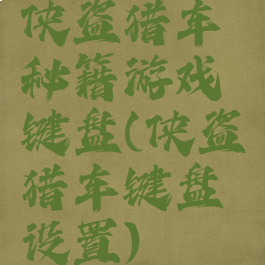 侠盗猎车
秘籍游戏
键盘(侠盗
猎车键盘
设置)